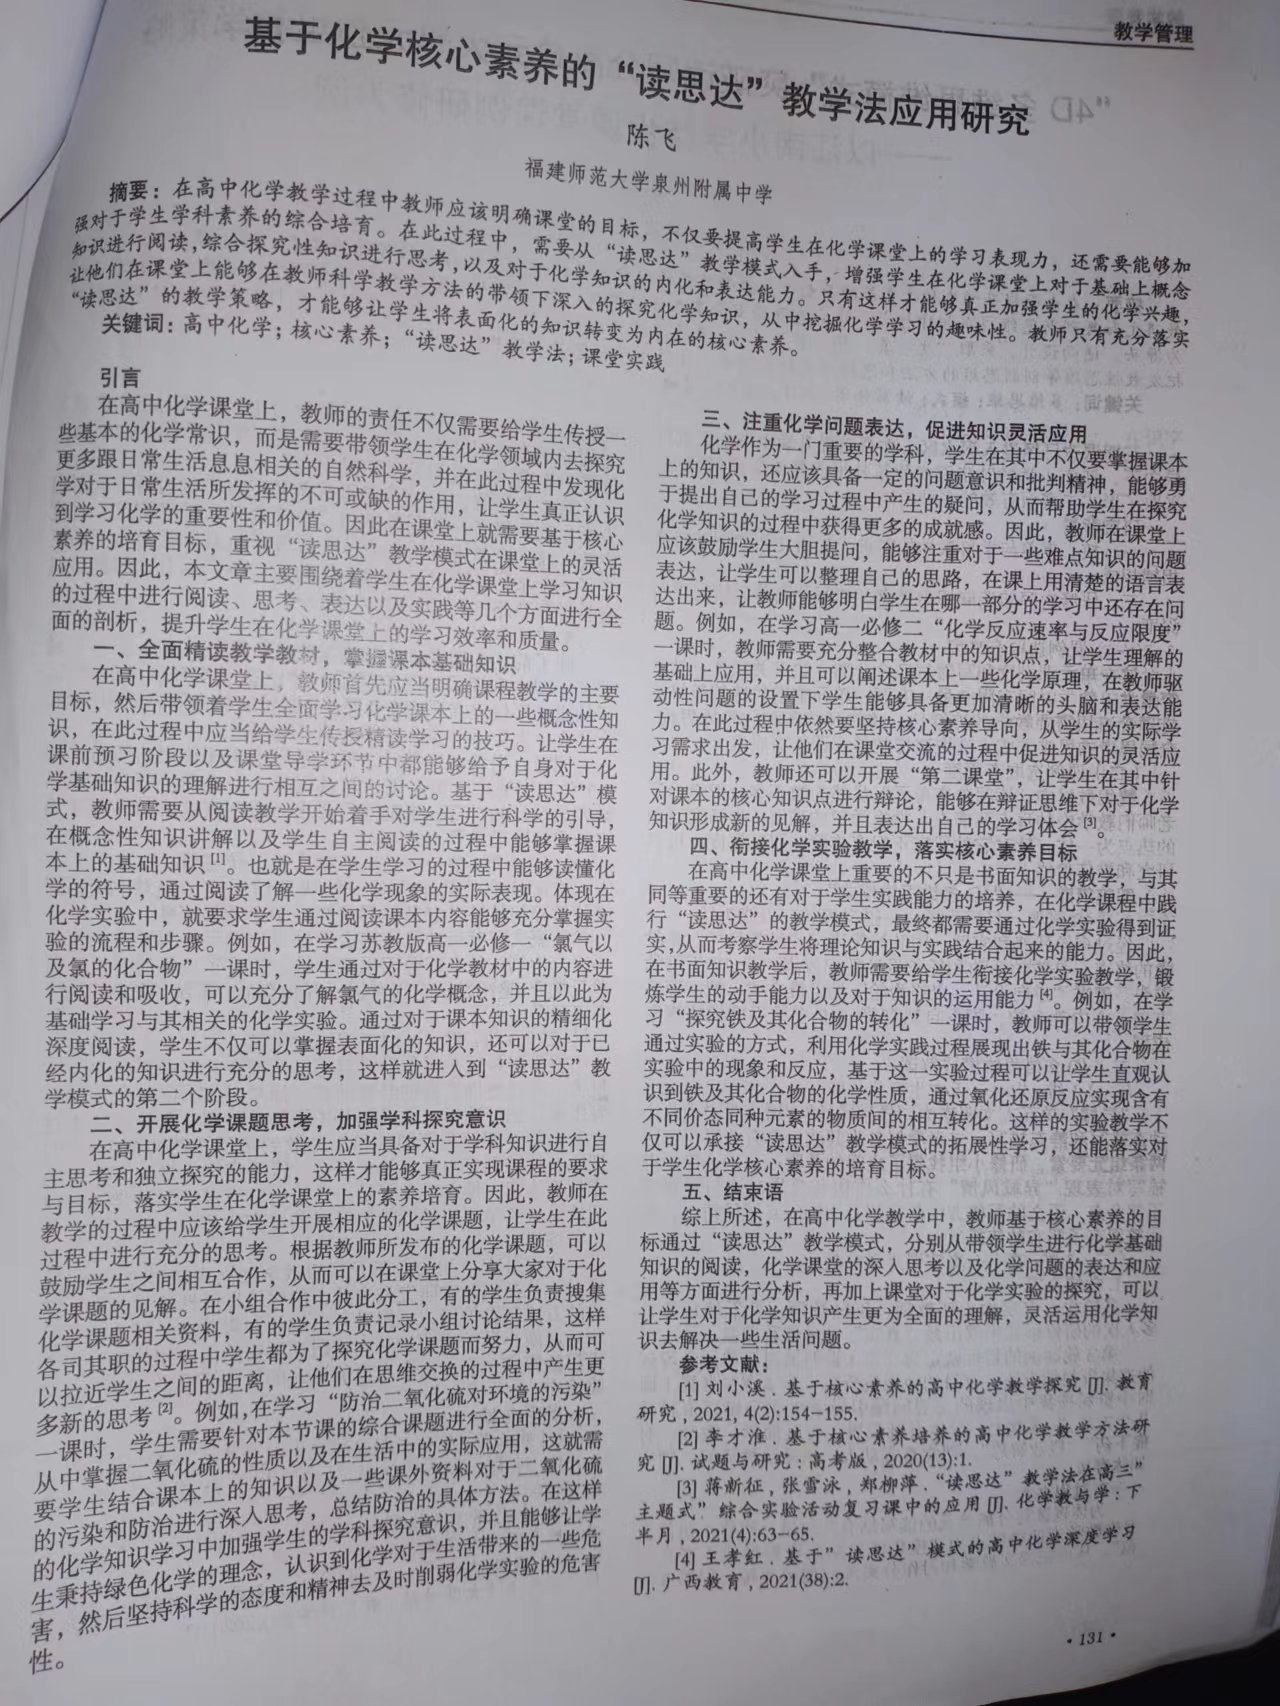 教学管理
基于化学核心素养的“读思达”教学法应用研究
陈飞
福建师范大学泉州附属中学
摘要：在高中化学教学过程中教师应该明确课堂的目标，不仅要提高学生在化学课堂上的学习表现力，还需要能够加
强对于学生学科素养的综合培育。在此过程中，需要从“读思达”教学模式入手，增强学生在化学课堂上对于基础上概念
知识进行阅读，综合探究性知识进行思考，以及对于化学知识的内化和表达能力。只有这样才能够真正加强学生的化学兴趣，
让他们在课堂上能够在教师科学教学方法的带领下深入的探究化学知识，从中挖掘化学学习的趣味性。教师只有充分落实
“读思达”的教学策略，才能够让学生将表面化的知识转变为内在的核心素养。
关键词：高中化学；核心素养；“读思达”教学法；课堂实践
引言
在高中化学课堂上，教师的责任不仅需要给学生传授一
些基本的化学常识，而是需要带领学生在化学领域内去探究
更多跟日常生活息息相关的自然科学，并在此过程中发现化
学对于日常生活所发挥的不可或缺的作用，让学生真正认识
到学习化学的重要性和价值。因此在课堂上就需要基于核心
素养的培育目标，重视“读思达”教学模式在课堂上的灵活
应用。因此，本文章主要围绕着学生在化学课堂上学习知识
的过程中进行阅读、思考、表达以及实践等几个方面进行全
面的剖析，提升学生在化学课堂上的学习效率和质量。
一、全面精读教学教材，掌握课本基础知识
在高中化学课堂上，教师首先应当明确课程教学的主要
目标，然后带领着学生全面学习化学课本上的一些概念性知
识，在此过程中应当给学生传授精读学习的技巧。让学生在
课前预习阶段以及课堂导学环节中都能够给予自身对于化
学基础知识的理解进行相互之间的讨论。基于“读思达”模
式，教师需要从阅读教学开始着手对学生进行科学的引导，
在概念性知识讲解以及学生自主阅读的过程中能够掌握课
本上的基础知识[1]。也就是在学生学习的过程中能够读懂化
学的符号，通过阅读了解一些化学现象的实际表现。体现在
化学实验中，就要求学生通过阅读课本内容能够充分掌握实
验的流程和步骤。例如，在学习苏教版高一必修一“氯气以
及氯的化合物”一课时，学生通过对于化学教材中的内容进
行阅读和吸收，可以充分了解氯气的化学概念，并且以此为
基础学习与其相关的化学实验。通过对于课本知识的精细化
深度阅读，学生不仅可以掌握表面化的知识，还可以对于已
经内化的知识进行充分的思考，这样就进入到“读思达”教
学模式的第二个阶段。
二、开展化学课题思考，加强学科探究意识
在高中化学课堂上，学生应当具备对于学科知识进行自
主思考和独立探究的能力，这样才能够真正实现课程的要求
与目标，落实学生在化学课堂上的素养培育。因此，教师在
教学的过程中应该给学生开展相应的化学课题，让学生在此
过程中进行充分的思考。根据教师所发布的化学课题，可以
鼓励学生之间相互合作，从而可以在课堂上分享大家对于化
学课题的见解。在小组合作中彼此分工，有的学生负责搜集
化学课题相关资料，有的学生负责记录小组讨论结果，这样
各司其职的过程中学生都为了探究化学课题而努力，从而可
以拉近学生之间的距离，让他们在思维交换的过程中产生更
多新的思考[2]。例如，在学习“防治二氧化硫对环境的污染”
一课时，学生需要针对本节课的综合课题进行全面的分析，
从中掌握二氧化硫的性质以及在生活中的实际应用，这就需
要学生结合课本上的知识以及一些课外资料对于二氧化硫
的污染和防治进行深入思考，总结防治的具体方法。在这样
的化学知识学习中加强学生的学科探究意识，并且能够让学
生秉持绿色化学的理念，认识到化学对于生活带来的一些危
害，然后坚持科学的态度和精神去及时削弱化学实验的危害
性。
三、注重化学问题表达，促进知识灵活应用
化学作为一门重要的学科，学生在其中不仅要掌握课本
上的知识，还应该具备一定的问题意识和批判精神，能够勇
于提出自己的学习过程中产生的疑问，从而帮助学生在探究
化学知识的过程中获得更多的成就感。因此，教师在课堂上
应该鼓励学生大胆提问，能够注重对于一些难点知识的问题
表达，让学生可以整理自己的思路，在课上用清楚的语言表
达出来，让教师能够明白学生在哪一部分的学习中还存在问
题。例如，在学习高一必修二“化学反应速率与反应限度”
一课时，教师需要充分整合教材中的知识点，让学生理解的
基础上应用，并且可以阐述课本上一些化学原理，在教师驱
动性问题的设置下学生能够具备更加清晰的头脑和表达能
力。在此过程中依然要坚持核心素养导向，从学生的实际学
习需求出发，让他们在课堂交流的过程中促进知识的灵活应
用。此外，教师还可以开展“第二课堂”，让学生在其中针
对课本的核心知识点进行辩论，能够在辩证思维下对于化学
知识形成新的见解，并且表达出自己的学习体会[3]。
四、衔接化学实验教学，落实核心素养目标
在高中化学课堂上重要的不只是书面知识的教学，与其
同等重要的还有对于学生实践能力的培养，在化学课程中践
行“读思达”的教学模式，最终都需要通过化学实验得到证
实，从而考察学生将理论知识与实践结合起来的能力。因此，
在书面知识教学后，教师需要给学生衔接化学实验教学，锻
炼学生的动手能力以及对于知识的运用能力[4]。例如，在学
习“探究铁及其化合物的转化”一课时，教师可以带领学生
通过实验的方式，利用化学实践过程展现出铁与其化合物在
实验中的现象和反应，基于这一实验过程可以让学生直观认
识到铁及其化合物的化学性质，通过氧化还原反应实现含有
不同价态同种元素的物质间的相互转化。这样的实验教学不
仅可以承接“读思达”教学模式的拓展性学习，还能落实对
于学生化学核心素养的培育目标。
五、结束语
综上所述，在高中化学教学中，教师基于核心素养的目
标通过“读思达”教学模式，分别从带领学生进行化学基础
知识的阅读，化学课堂的深入思考以及化学问题的表达和应
用等方面进行分析，再加上课堂对于化学实验的探究，可以
让学生对于化学知识产生更为全面的理解，灵活运用化学知
识去解决一些生活问题。
参考文献：
[1] 刘小溪．基于核心素养的高中化学教学探究 [J]. 教育
研究, 2021, 4(2):154-155.
[2] 李才淮．基于核心素养培养的高中化学教学方法研
究 [J]. 试题与研究：高考版, 2020(13):1.
[3] 蒋新征, 张雪泳, 郑柳萍．“读思达”教学法在高三”
主题式”综合实验活动复习课中的应用 [J]. 化学教与学：下
半月, 2021(4):63-65.
[4] 王孝红．基于”读思达”模式的高中化学深度学习
[J]. 广西教育, 2021(38):2.
·131·